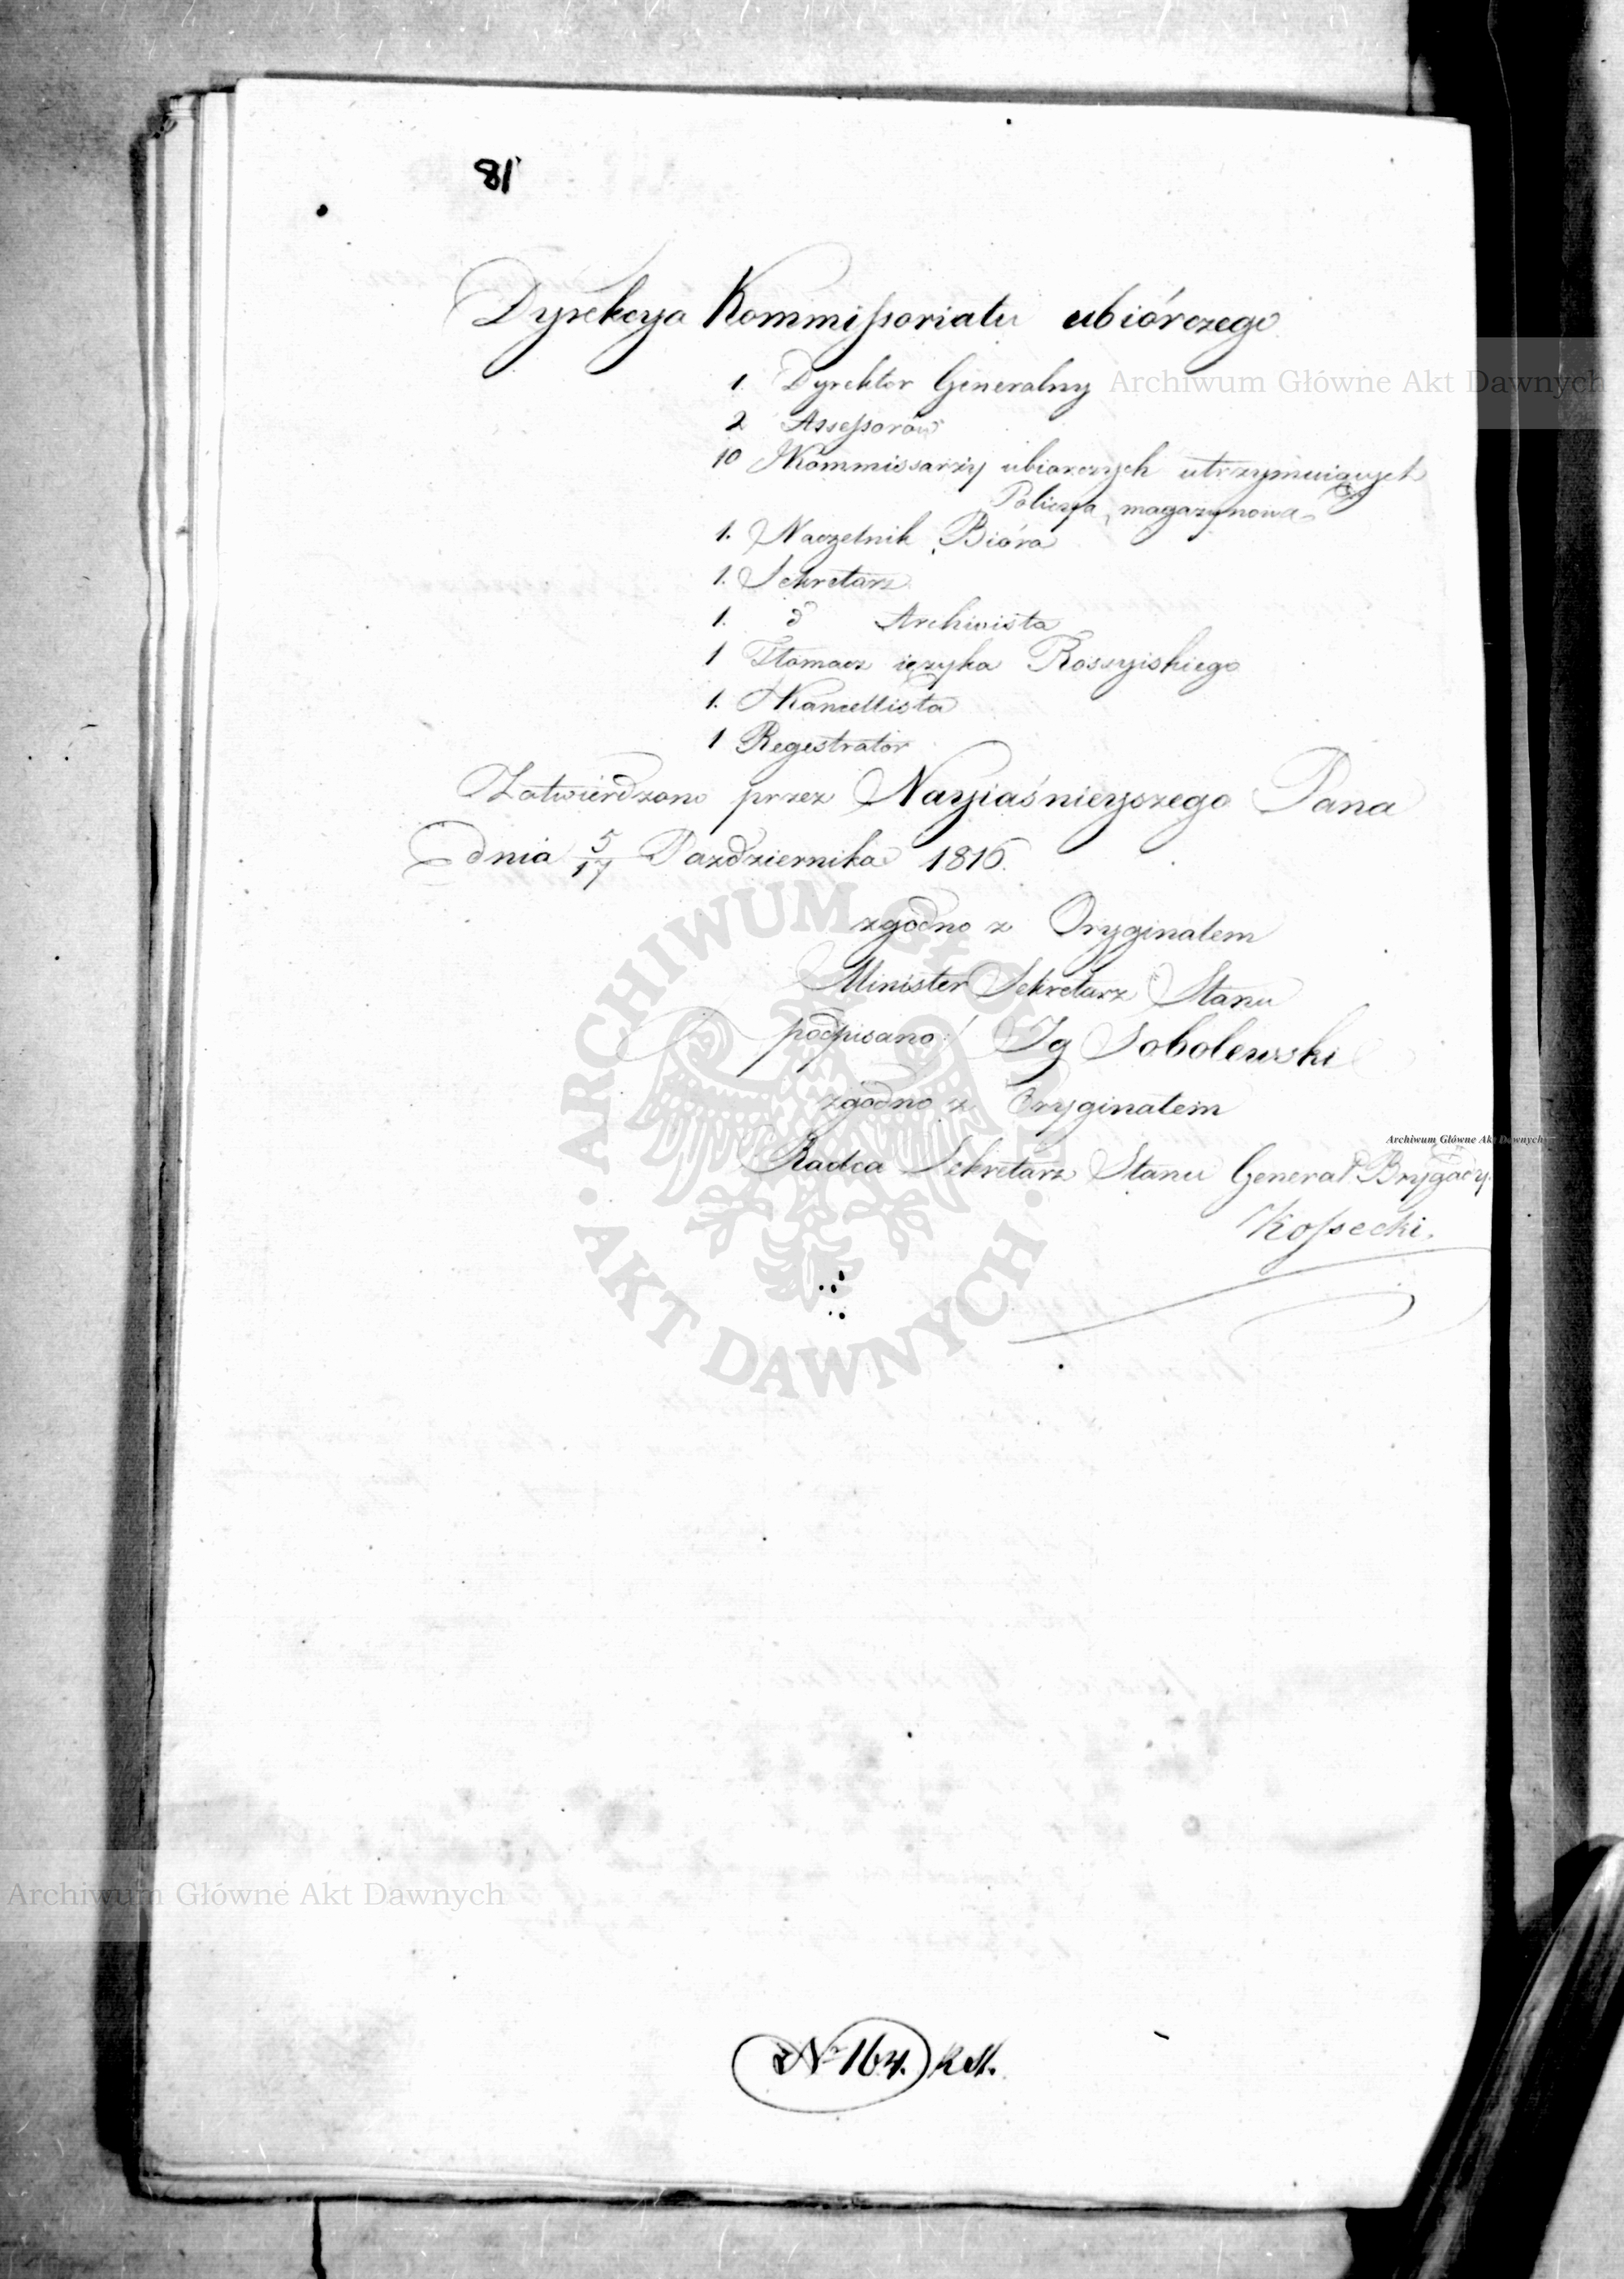 81
Dyrekcya Kommissoriatu ubiórczego
1. Dyrektor Generalny
2 Assessorów
10 Kommissarzy ubiorczych utrzymuiących
Policyą magazynową
1. Naczelnik Bióra
1. Sekretarz
1. d° Archivista
1 Tłomacz ięzyka Rossyiskiego
1. Kancellista
1 Registrator
Zatwierdzono przez Nayiaśnieyszego Pana
dnia 5/17 Pazdziernika 1816.
zgodno z Oryginałem
Minister Sekretarz Stanu
podpisano:/ Ig Sobolewski
zgodno z Oryginałem
Radca Sekretarz Stanu Generał Brygady
Kossecki.
N 164.
Archiwum Główne Akt Dawnych
Archiwum Główne Akt Dawnych
Archiwum Główne Akt Dawnych
ARCHIWUM GŁÓWNE
AKT DAWNYCH